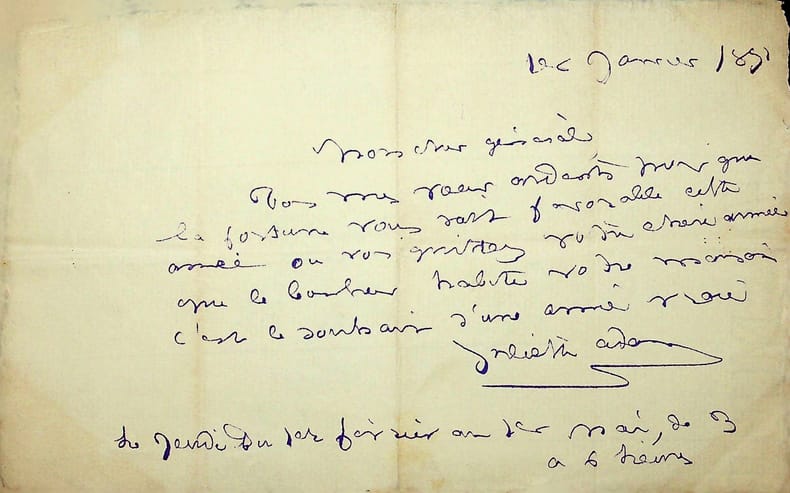 1er Janvier 189
Mon cher général,
Tous mes vœux ardents pour que
la fortune vous soit favorable cette
année où vos quittez votre chère armée
que le bonheur habite votre maison
c'est le souhait d'une amie vraie
Juliette Adam
le jeudi du 1er février au 1er mai, de 3
a 6 heures